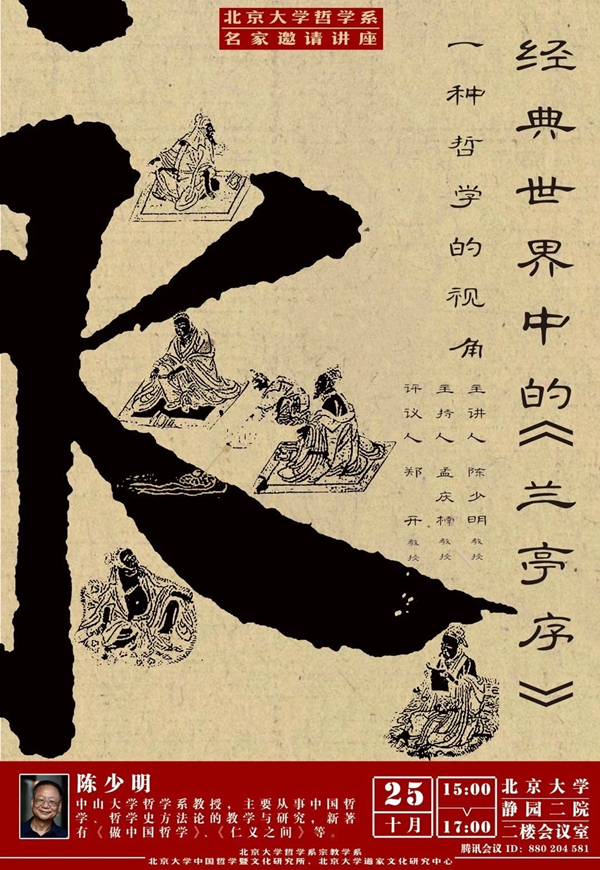 北京大学哲学系
名家邀请讲座
经典世界中的《兰亭序》
一种哲学的视角
主讲人 陈少明教授
主持人 孟庆楠教授
评议人 郑开教授
永
陈少明
中山大学哲学系教授，主要从事中国哲
学、哲学史方法论的教学与研究，新著
有《做中国哲学》、《仁义之间》等。
25
十月
15:00
17:00
北京大学
静园二院
二楼会议室
腾讯会议 ID: 880 204 581
北京大学哲学系宗教学系
北京大学中国哲学暨文化研究所、北京大学道家文化研究中心